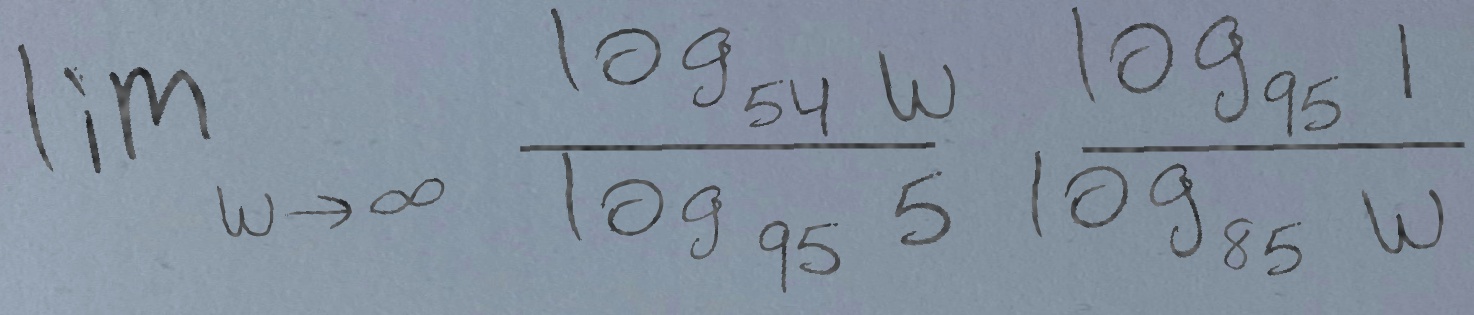 lim_{w→∞} \frac{log_{54} w}{log_{95} 5} \frac{log_{95} 1}{log_{85} w}